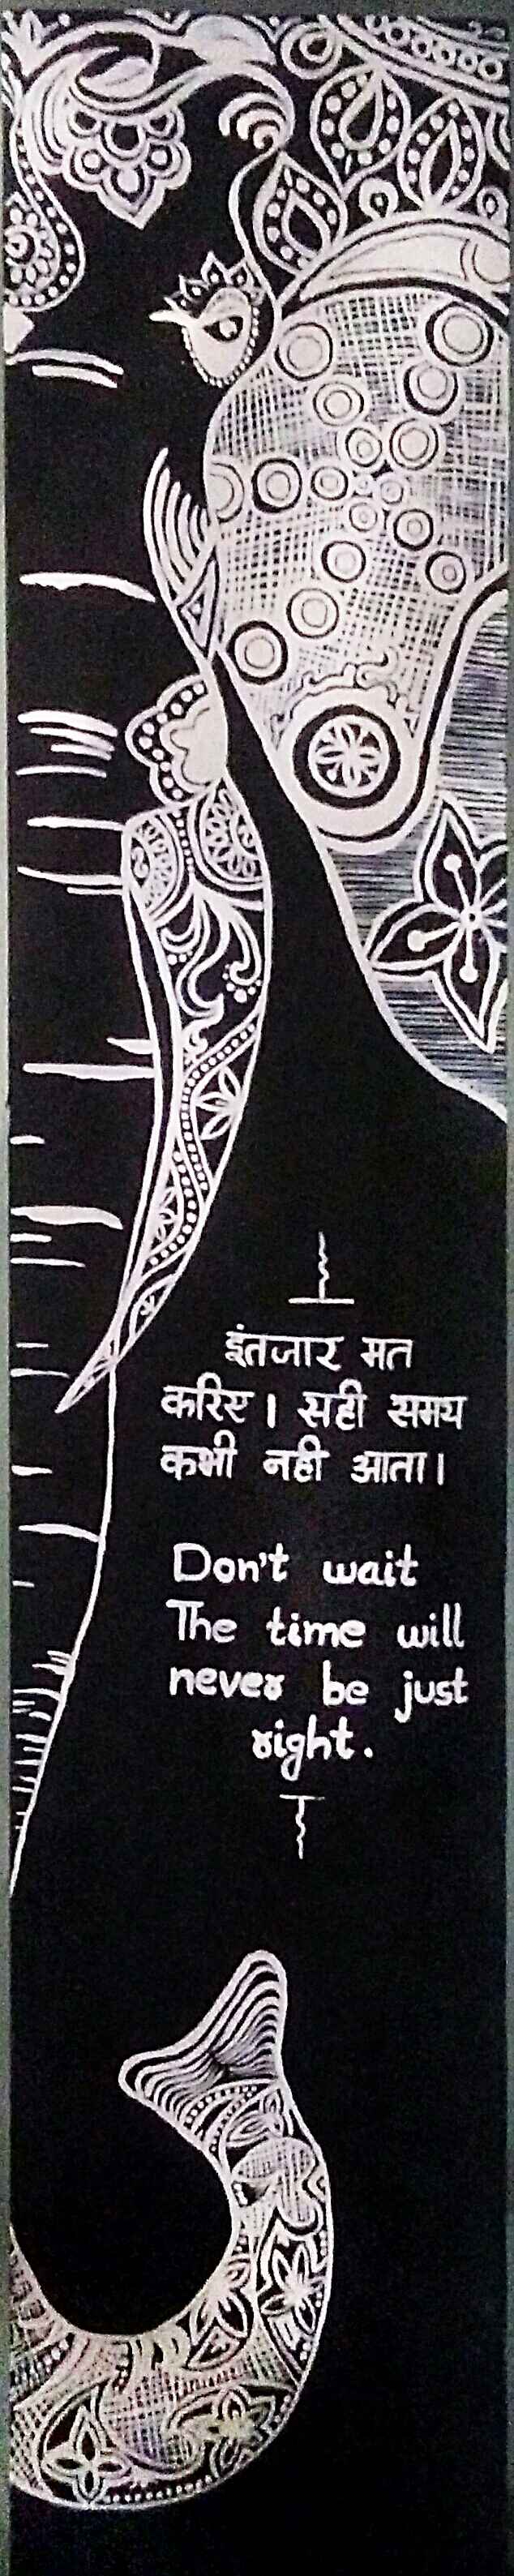 इंतजार मत
करिए। सही समय
कभी नही आता।
Don't wait
The time will
never be just
right.